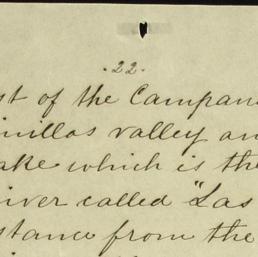 . 22 .
st of the Campan
inillas valley an
ake which is the
iver called "Las
stance from the